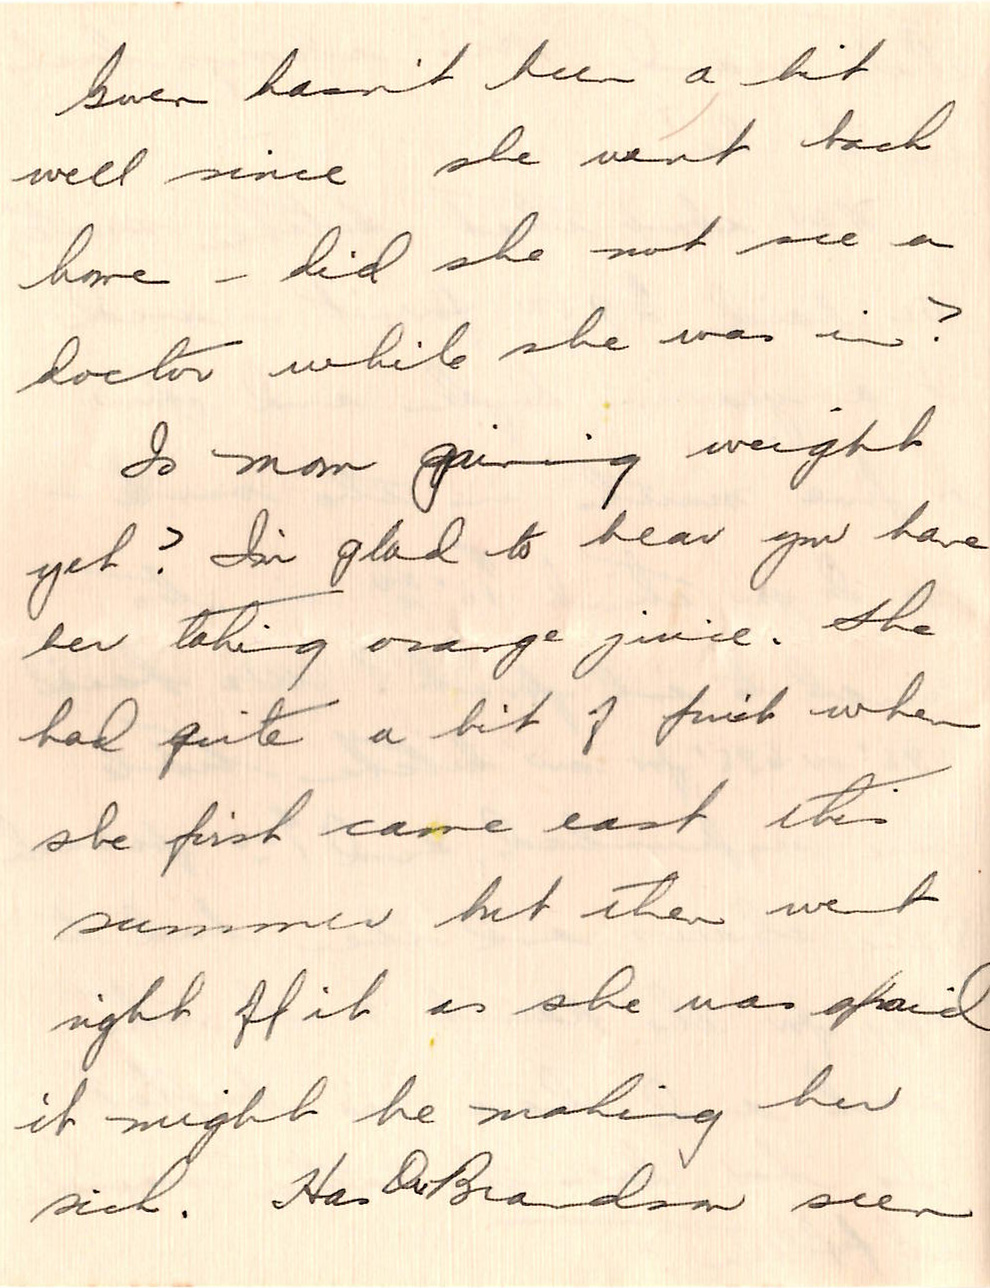 Gwen hasn't been a bit
well since she went back
home - did she not see a
doctor while she was in?
Is mom gaining weight
yet? I'm glad to hear you have
her taking orange juice. She
had quite a bit of fruit when
she first came east this
summer but then went
right off it as she was afraid
it might be making her
sick. Has Dr Brandson seen